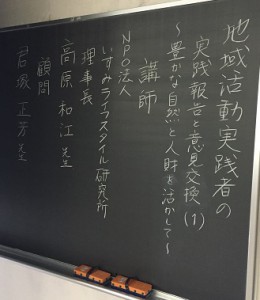 地域活動実践者の
実践報告と意見交換(1)
〜豊かな自然と人財を活かして〜
講師
NPO法人
いすみライフスタイル研究所
理事長
高原和江先生
顧問
君塚正芳先生